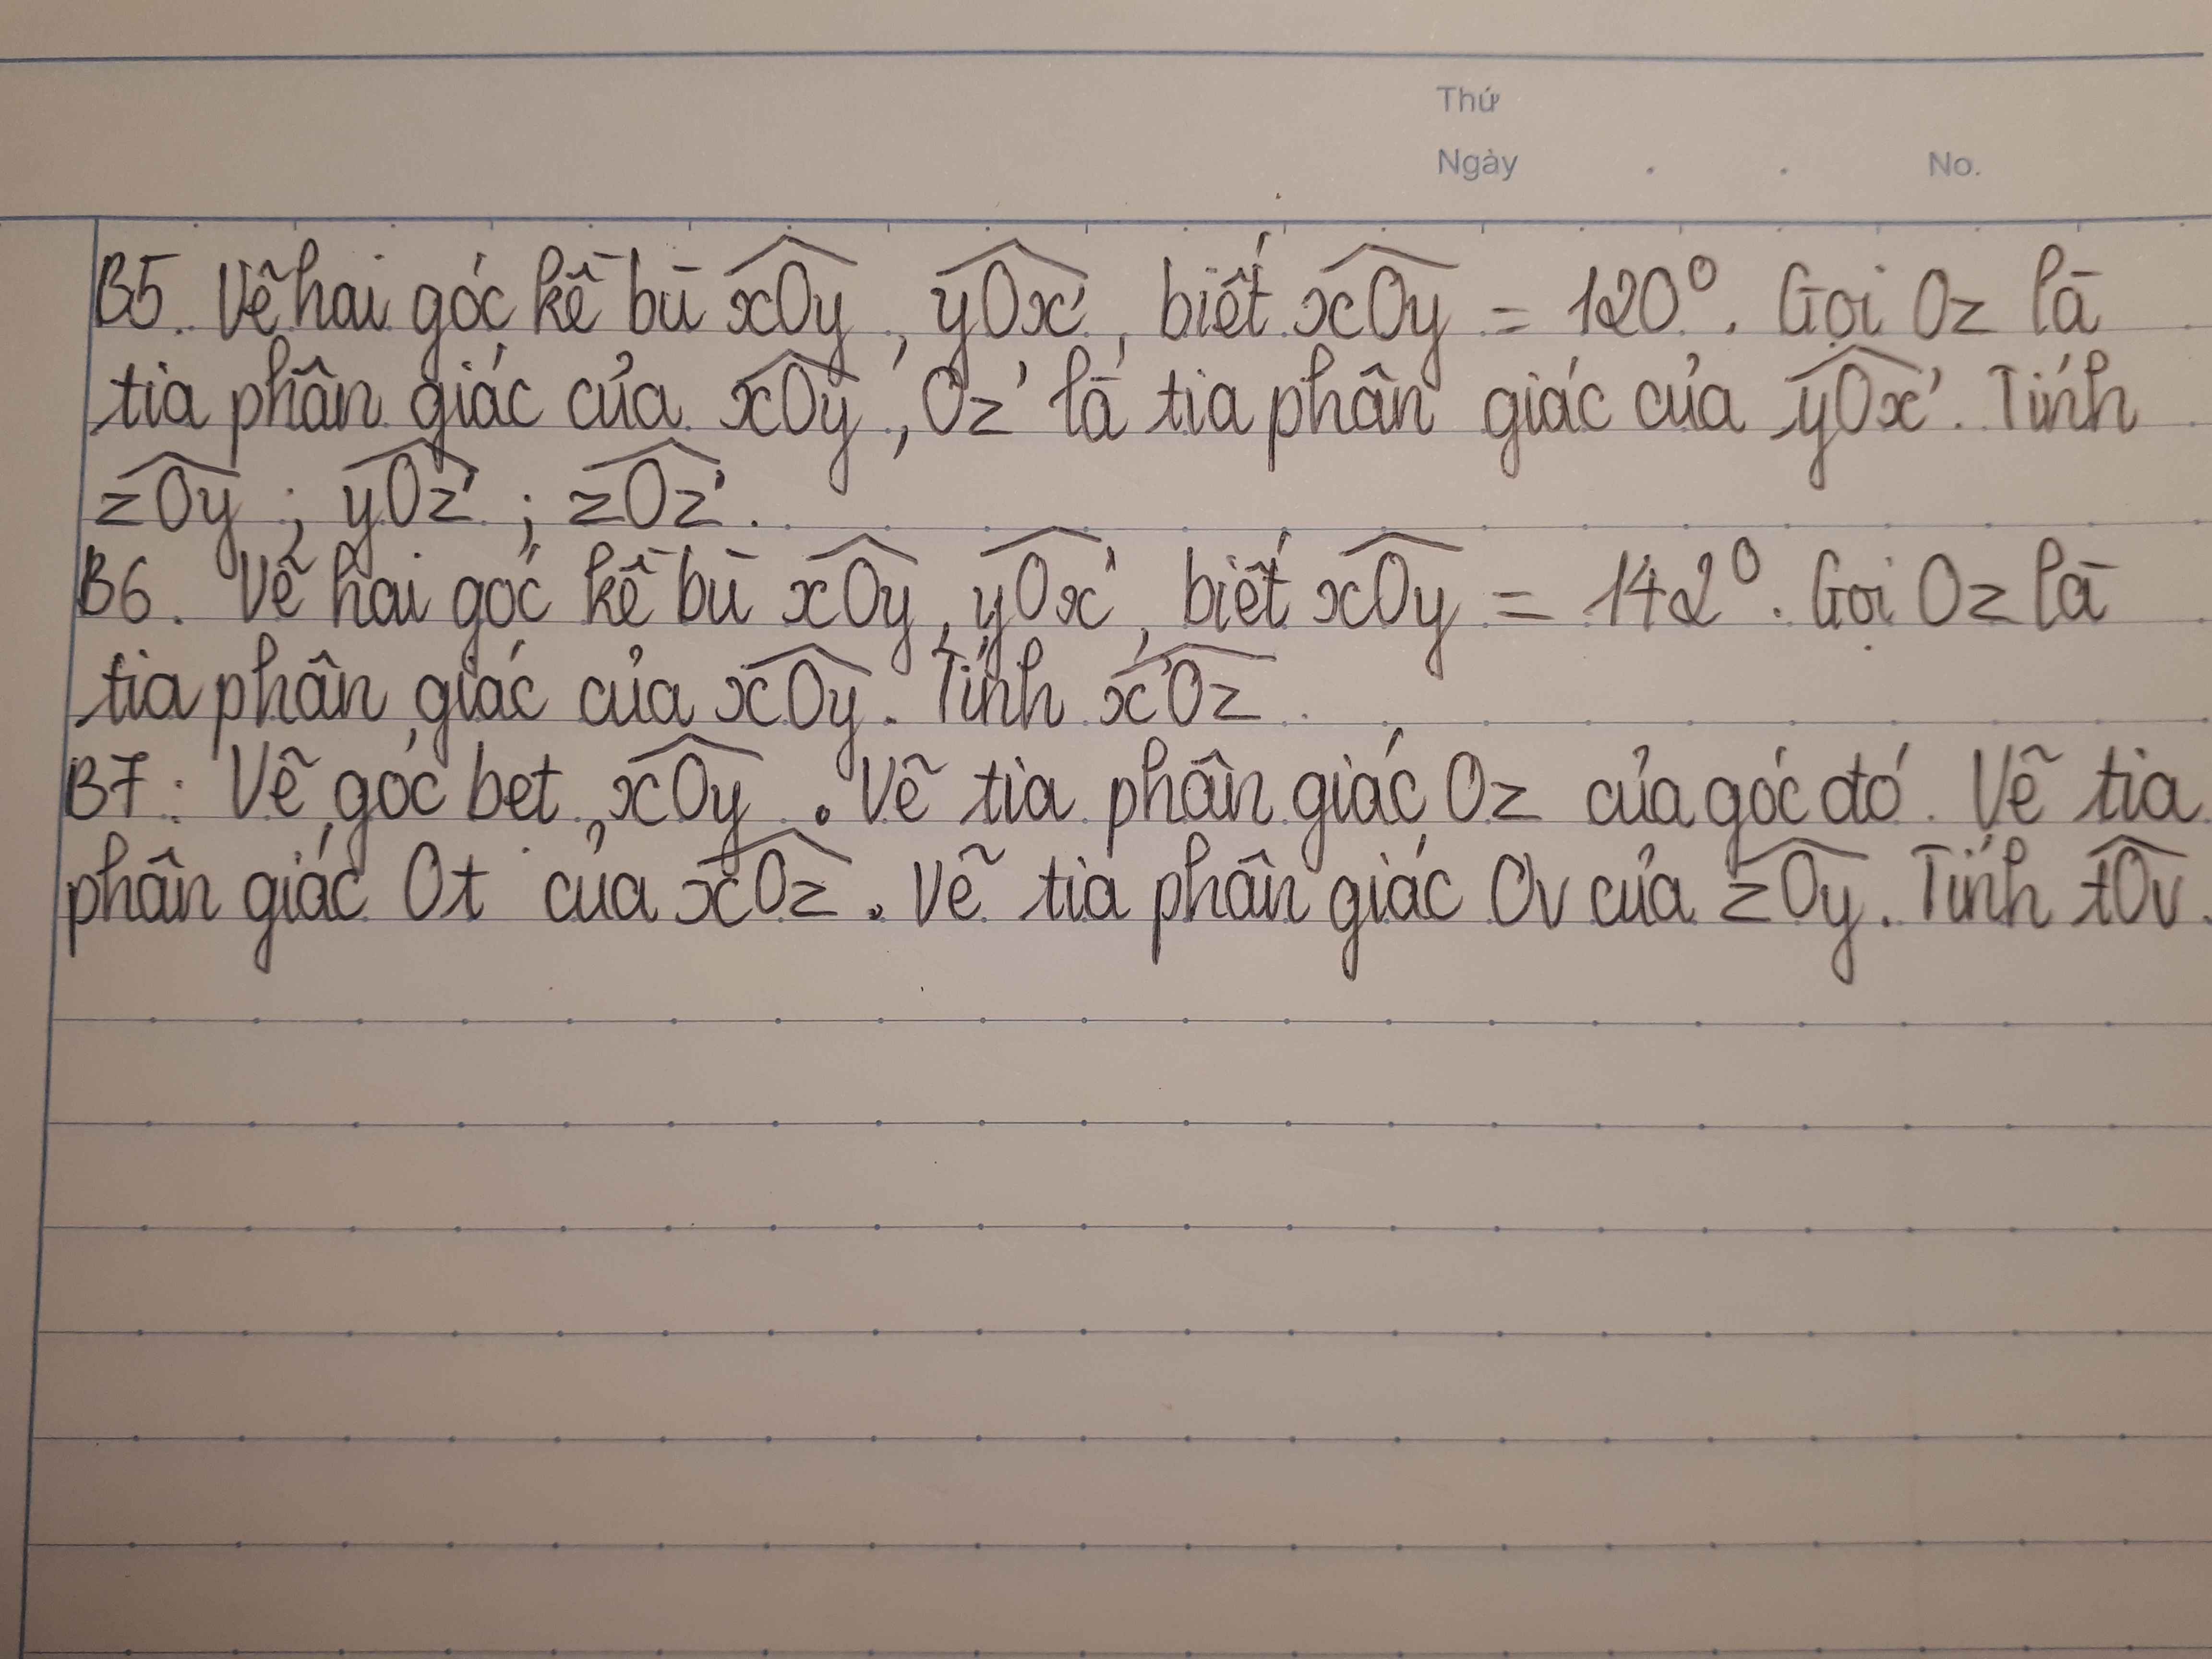 Thứ
Ngày . . No.
B5. Vẽ hai góc kề bù xOy, yOx', biết xOy = 120°. Gọi Oz là
tia phân giác của xOy, Oz' là tia phân giác của yOx'. Tính
zOy ; yOz' ; zOz'.
B6. Vẽ hai góc kề bù xOy, yOx', biết xOy = 142°. Gọi Oz là
tia phân giác của xOy. Tính x'Oz.
B7: Vẽ góc bet xOy. Vẽ tia phân giác Oz của góc đó. Vẽ tia
phân giác Ot của xOz. Vẽ tia phân giác Ov của zOy. Tính tOv.